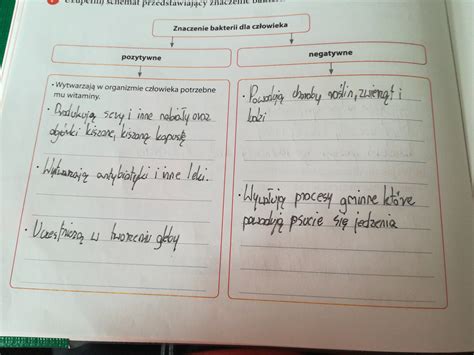 Uzupełnij schemat przedstawiający znaczenie
Znaczenie bakterii dla człowieka
pozytywne
negatywne
• Wytwarzają w organizmie człowieka potrzebne
mu witaminy.
• Produkują sery i inne nabiały oraz
ogórki kiszone, kiszoną kapustę
• Wytwarzają antybiotyki i inne leki.
• Uczestniczą w tworzeniu gleby
• Powodują choroby roślin, zwierząt i
ludzi
• Wywołują procesy gnilne które
powodują psucie się jedzenia